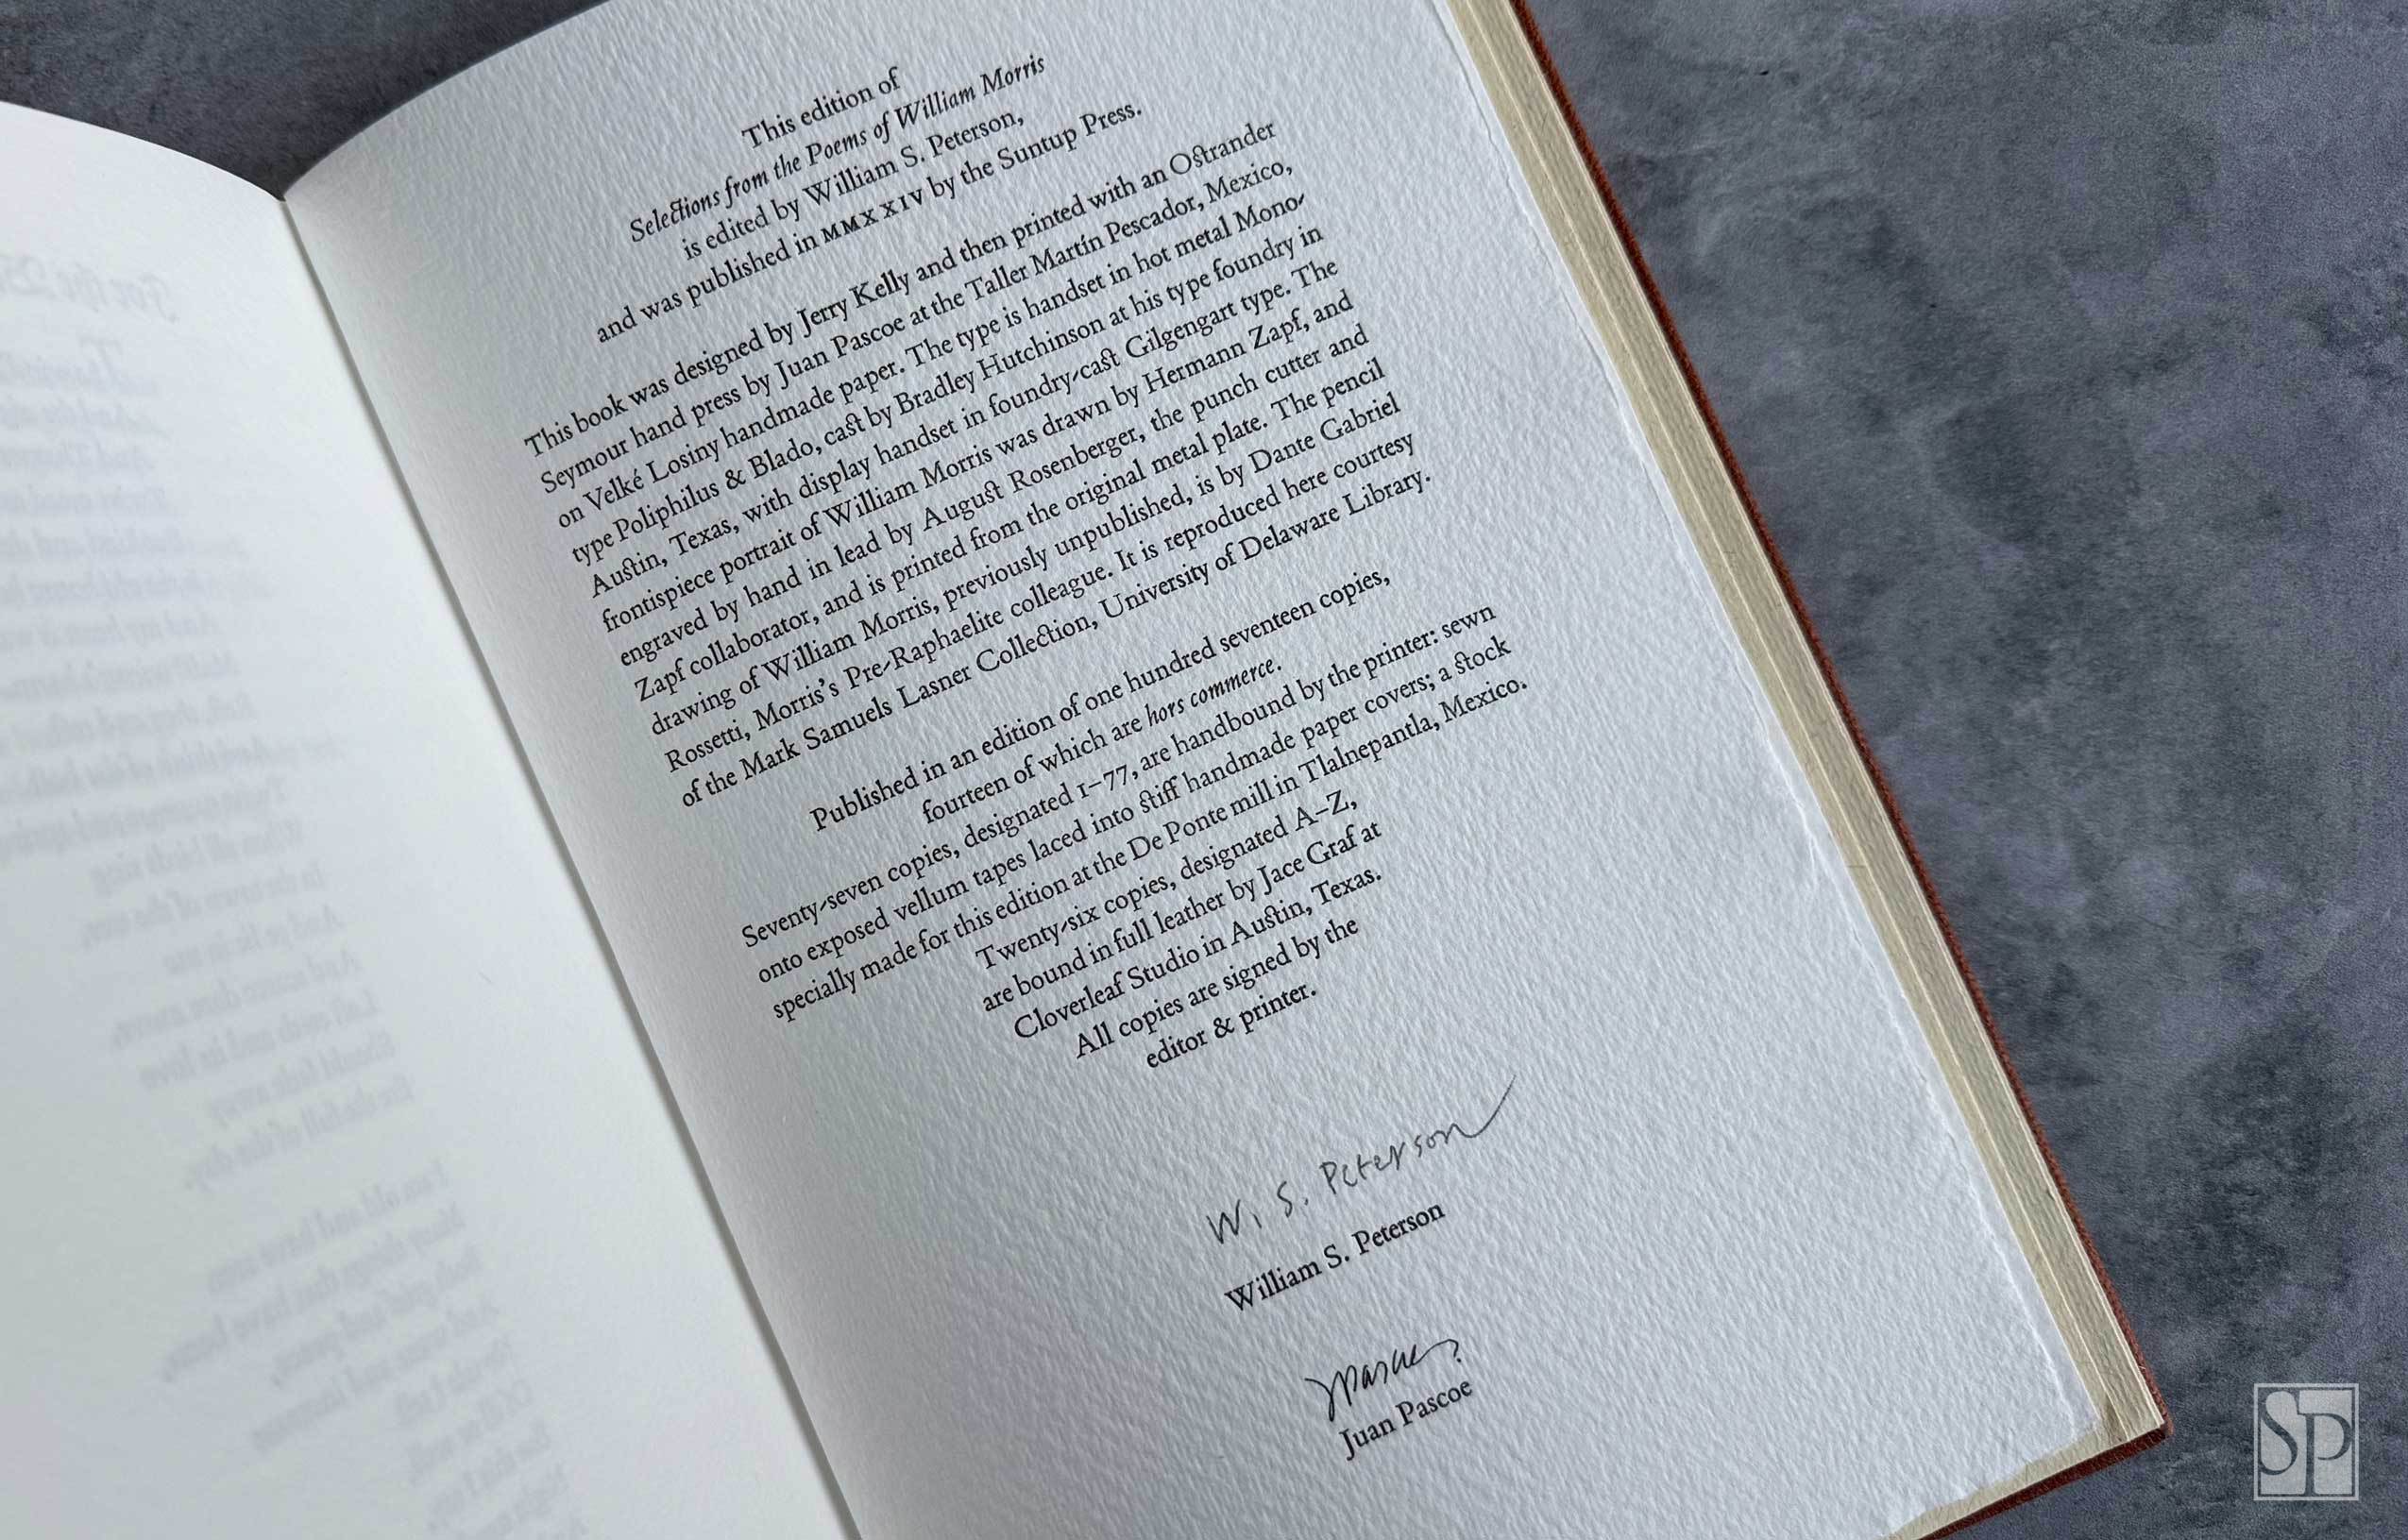 This edition of
Selections from the Poems of William Morris
is edited by William S. Peterson,
and was published in MMXXIV by the Suntup Press.
This book was designed by Jerry Kelly and then printed with an Ostrander
Seymour hand press by Juan Pascoe at the Taller Martín Pescador, Mexico,
on Velké Losiny handmade paper. The type is handset in hot metal Mono-
type Poliphilus & Blado, cast by Bradley Hutchinson at his type foundry in
Austin, Texas, with display handset in foundry-cast Gilgengart type. The
frontispiece portrait of William Morris was drawn by Hermann Zapf, and
engraved by hand in lead by August Rosenberger, the punch cutter and
Zapf collaborator, and is printed from the original metal plate. The pencil
drawing of William Morris, previously unpublished, is by Dante Gabriel
Rossetti, Morris's Pre-Raphaelite colleague. It is reproduced here courtesy
of the Mark Samuels Lasner Collection, University of Delaware Library.
Published in an edition of one hundred seventeen copies,
fourteen of which are hors commerce.
Seventy-seven copies, designated 1–77, are handbound by the printer: sewn
onto exposed vellum tapes laced into stiff handmade paper covers; a stock
specially made for this edition at the De Ponte mill in Tlalnepantla, Mexico.
Twenty-six copies, designated A–Z,
are bound in full leather by Jace Graf at
Cloverleaf Studio in Austin, Texas.
All copies are signed by the
editor & printer.
W. S. Peterson
William S. Peterson
JPascoe
Juan Pascoe
SP